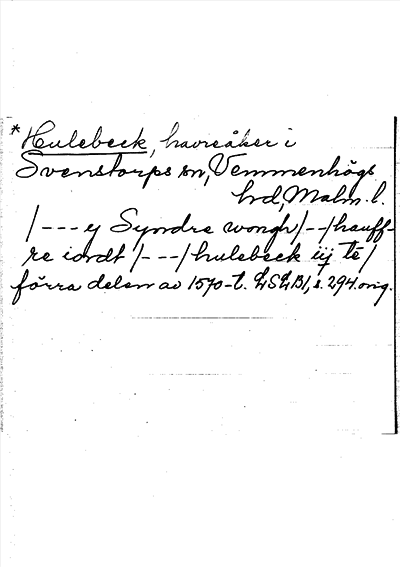 *Hulebeck, havreåker i
Svenstorps sn, Vemmenhögs
hd, Malm. l.
/--- y Syndre wongh/--/hauff-
re iordt /---/ hulebeck iij te /
förra delen av 1570-t. LSLB1, s. 294 orig.